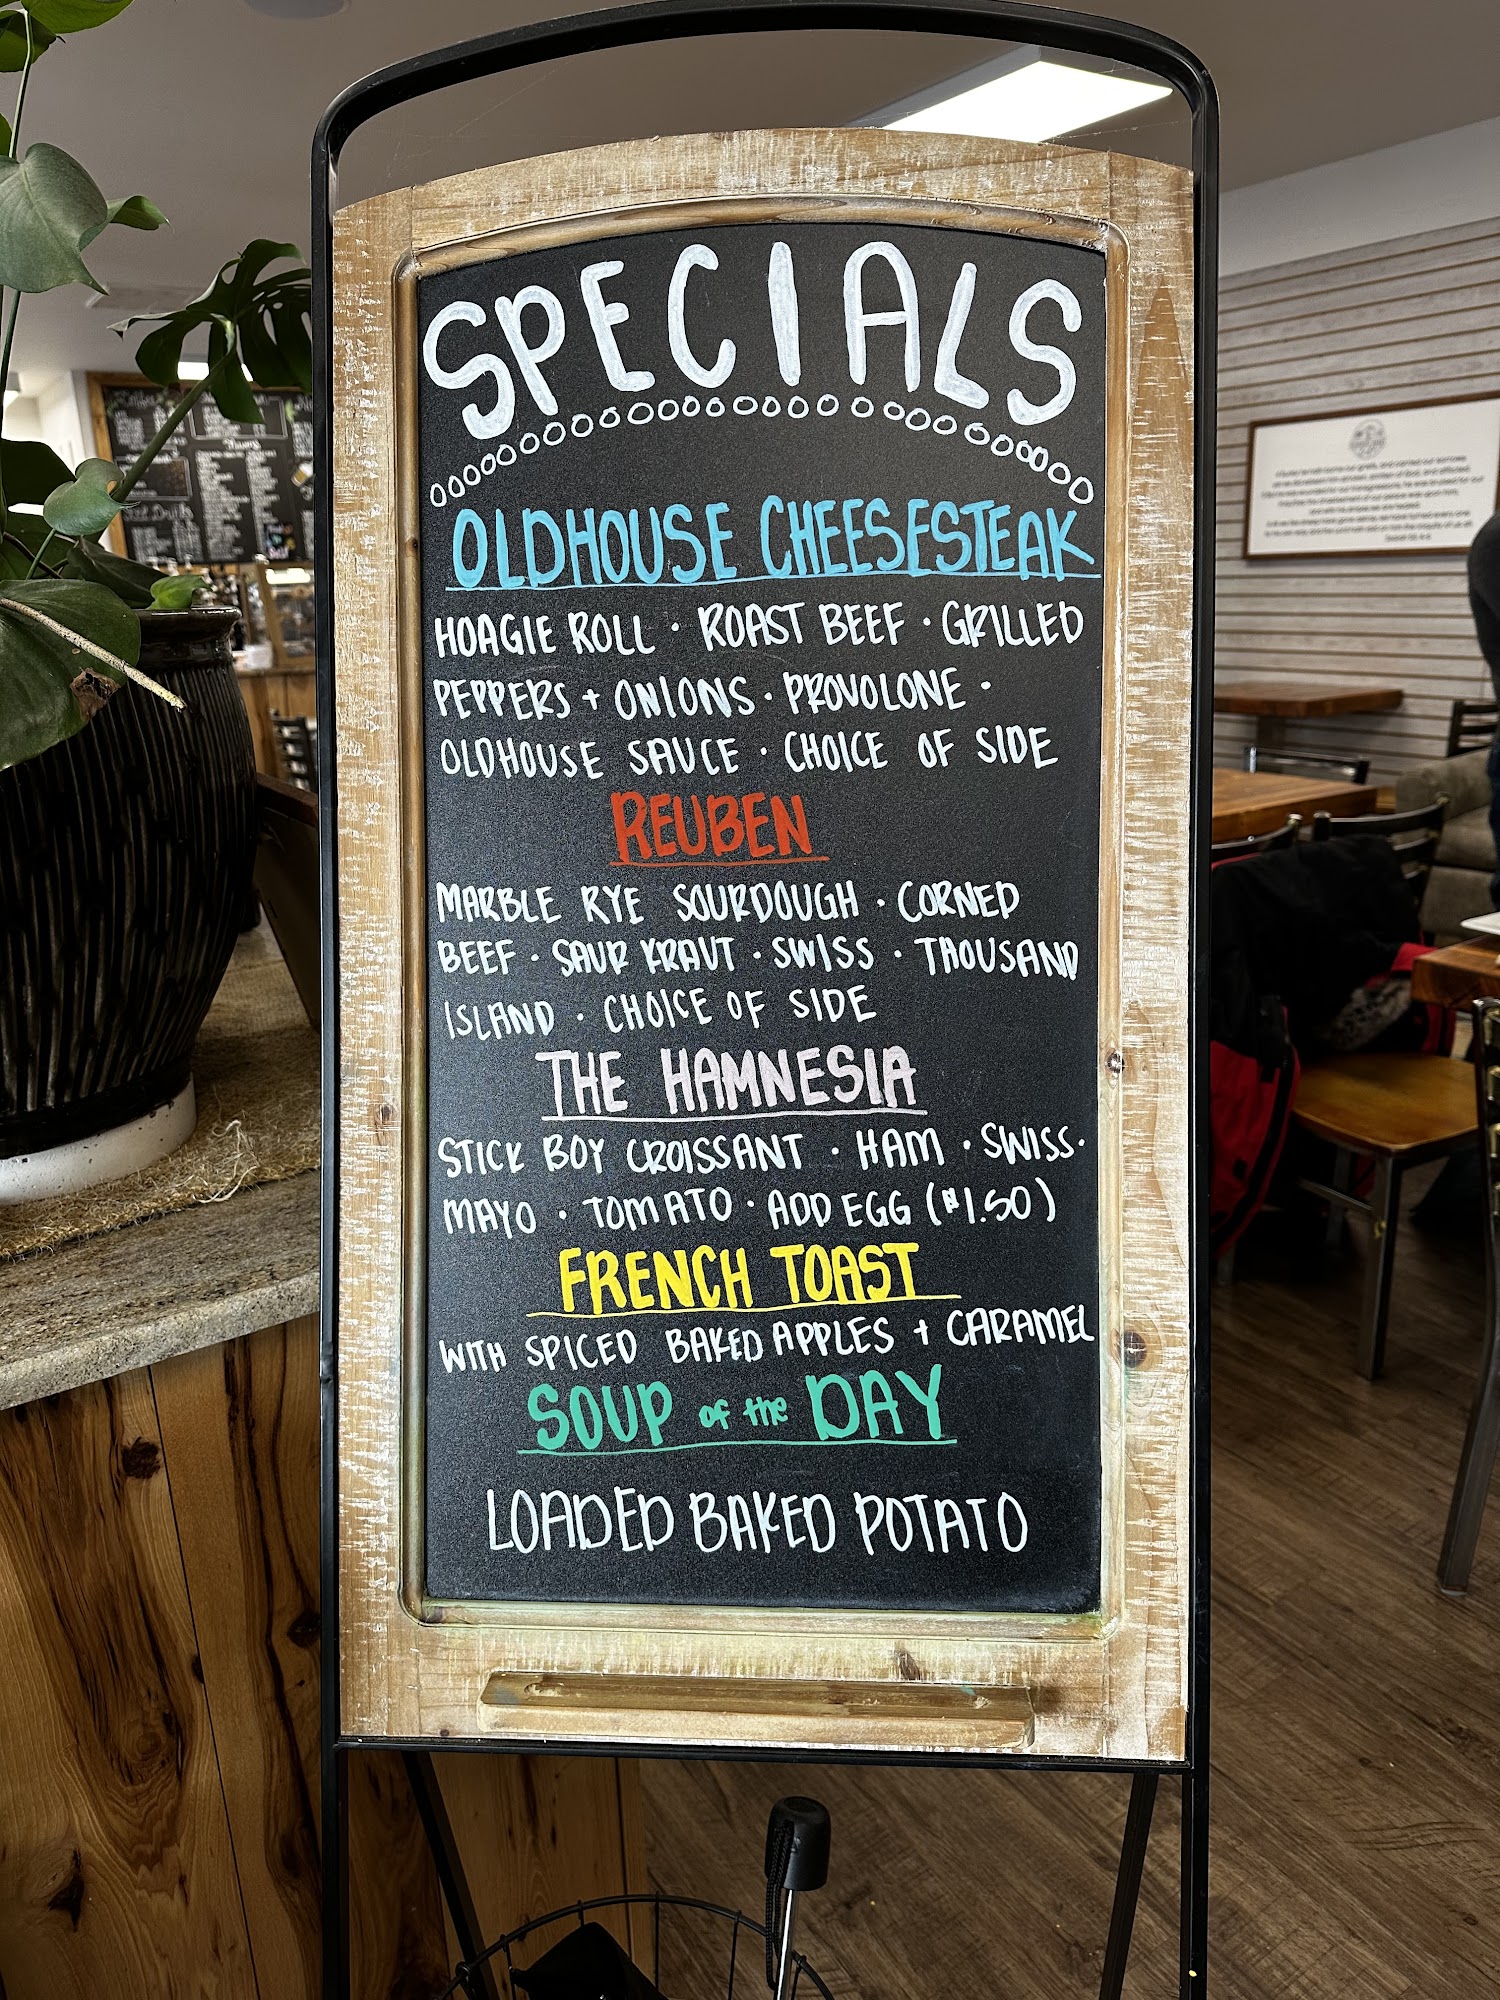 SPECIALS
OLDHOUSE CHEESESTEAK
HOAGIE ROLL · ROAST BEEF · GRILLED
PEPPERS + ONIONS · PROVOLONE ·
OLDHOUSE SAUCE · CHOICE OF SIDE
REUBEN
MARBLE RYE SOURDOUGH · CORNED
BEEF · SAUR KRAUT · SWISS · THOUSAND
ISLAND · CHOICE OF SIDE
THE HAMNESIA
STICK BOY CROISSANT · HAM · SWISS ·
MAYO · TOMATO · ADD EGG ($1.50)
FRENCH TOAST
WITH SPICED BAKED APPLES + CARAMEL
SOUP of the DAY
LOADED BAKED POTATO